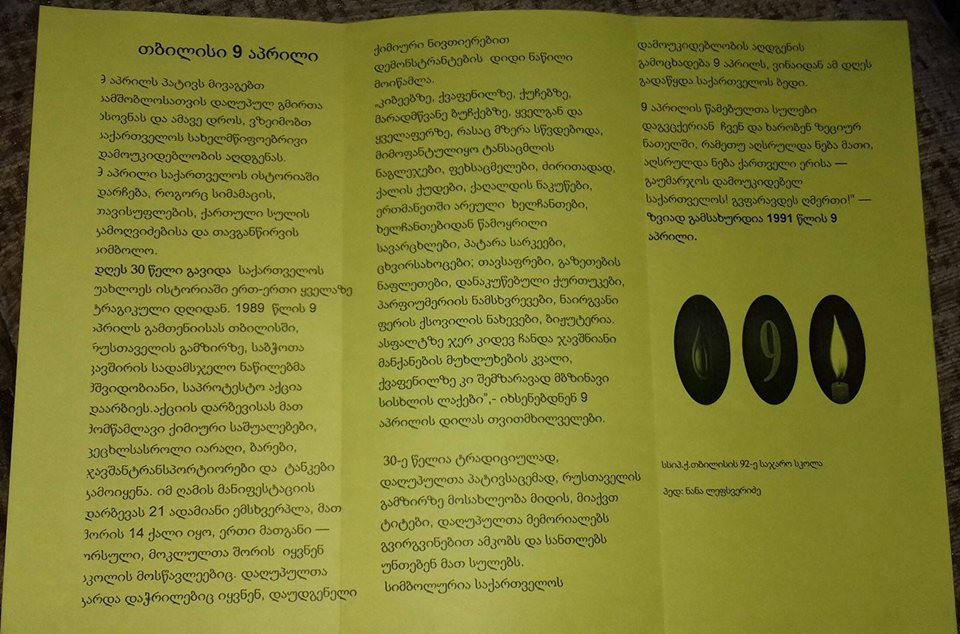 თბილისი 9 აპრილი
9 აპრილს პატივს მივაგებთ
სამშობლოსათვის დაღუპულ გმირთა
ხსოვნას და ამავე დროს, ვზეიმობთ
საქართველოს სახელმწიფოებრივი
დამოუკიდებლობის აღდგენას.
9 აპრილი საქართველოს ისტორიაში
დარჩება, როგორც სიმამაცის,
თავისუფლების, ქართული სულის
გამოღვიძებისა და თავგანწირვის
სიმბოლო.
დღეს 30 წელი გავიდა საქართველოს
უახლოეს ისტორიაში ერთ-ერთი ყველაზე
ტრაგიკული დღიდან. 1989 წლის 9
აპრილს გამთენიისას თბილისში,
რუსთაველის გამზირზე, საბჭოთა
კავშირის სადამსჯელო ნაწილებმა
მშვიდობიანი, საპროტესტო აქცია
დაარბიეს.აქციის დარბევისას მათ
მომწამლავი ქიმიური საშუალებები,
ცეცხლსასროლი იარაღი, ბარები,
ჯავშანტრანსპორტიორები და ტანკები
გამოიყენა. იმ ღამის მანიფესტაციის
დარბევას 21 ადამიანი ემსხვერპლა, მათ
შორის 14 ქალი იყო, ერთი მათგანი —
ორსული, მოკლულთა შორის იყვნენ
სკოლის მოსწავლეებიც. დაღუპულთა
გარდა დაჭრილებიც იყვნენ, დაუდგენელი
ქიმიური ნივთიერებით
დემონსტრანტების დიდი ნაწილი
მოიწამლა.
„კიბეებზე, ქვაფენილზე, ქუჩებზე,
მარადმწვანე ბუჩქებზე, ყველგან და
ყველაფერზე, რასაც მზერა სწვდებოდა,
მიმოფანტულიყო ტანსაცმლის
ნაგლეჯები, ფეხსაცმელები, ძირითადად,
ქალის ქუდები, ქაღალდის ნაკუწები,
ერთმანეთში არეული ხელჩანთები,
ხელჩანთებიდან წამოყრილი
სავარცხლები, პატარა სარკეები,
ცხვირსახოცები; თავსაფრები, გაზეთების
ნაფლეთები, დანაკუწებული ქურთუკები,
პარფიუმერიის ნამსხვრევები, ნაირგვანი
ფერის ქსოვილის ნახევები, ბიჟუტერია.
ასფალტზე ჯერ კიდევ ჩანდა ჯავშნიანი
მანქანების მუხლუხების კვალი,
ქვაფენილზე კი შემზარავად მბზინავი
სისხლის ლაქები”,- იხსენებდნენ 9
აპრილის დილას თვითმხილველები.
30-ე წელია ტრადიციულად,
დაღუპულთა პატივსაცემად, რუსთაველის
გამზირზე მოსახლეობა მიდის, მიაქვთ
ტიტები, დაღუპულთა მემორიალებს
გვირგვინებით ამკობს და სანთლებს
უნთებენ მათ სულებს.
სიმბოლურია საქართველოს
დამოუკიდებლობის აღდგენის
გამოცხადება 9 აპრილს, ვინაიდან ამ დღეს
გადაწყდა საქართველოს ბედი.
9 აპრილის წამებულთა სულები
დაგვცქერიან ჩვენ და ხარობენ ზეციურ
ნათელში, რამეთუ აღსრულდა ნება მათი,
აღსრულდა ნება ქართველი ერისა —
გაუმარჯოს დამოუკიდებელ
საქართველოს! გვფარავდეს ღმერთი!” —
ზვიად გამსახურდია 1991 წლის 9
აპრილი.
9
სსიპ.ქ.თბილისის 92-ე საჯარო სკოლა
პედ: ნანა ლეფსვერიძე